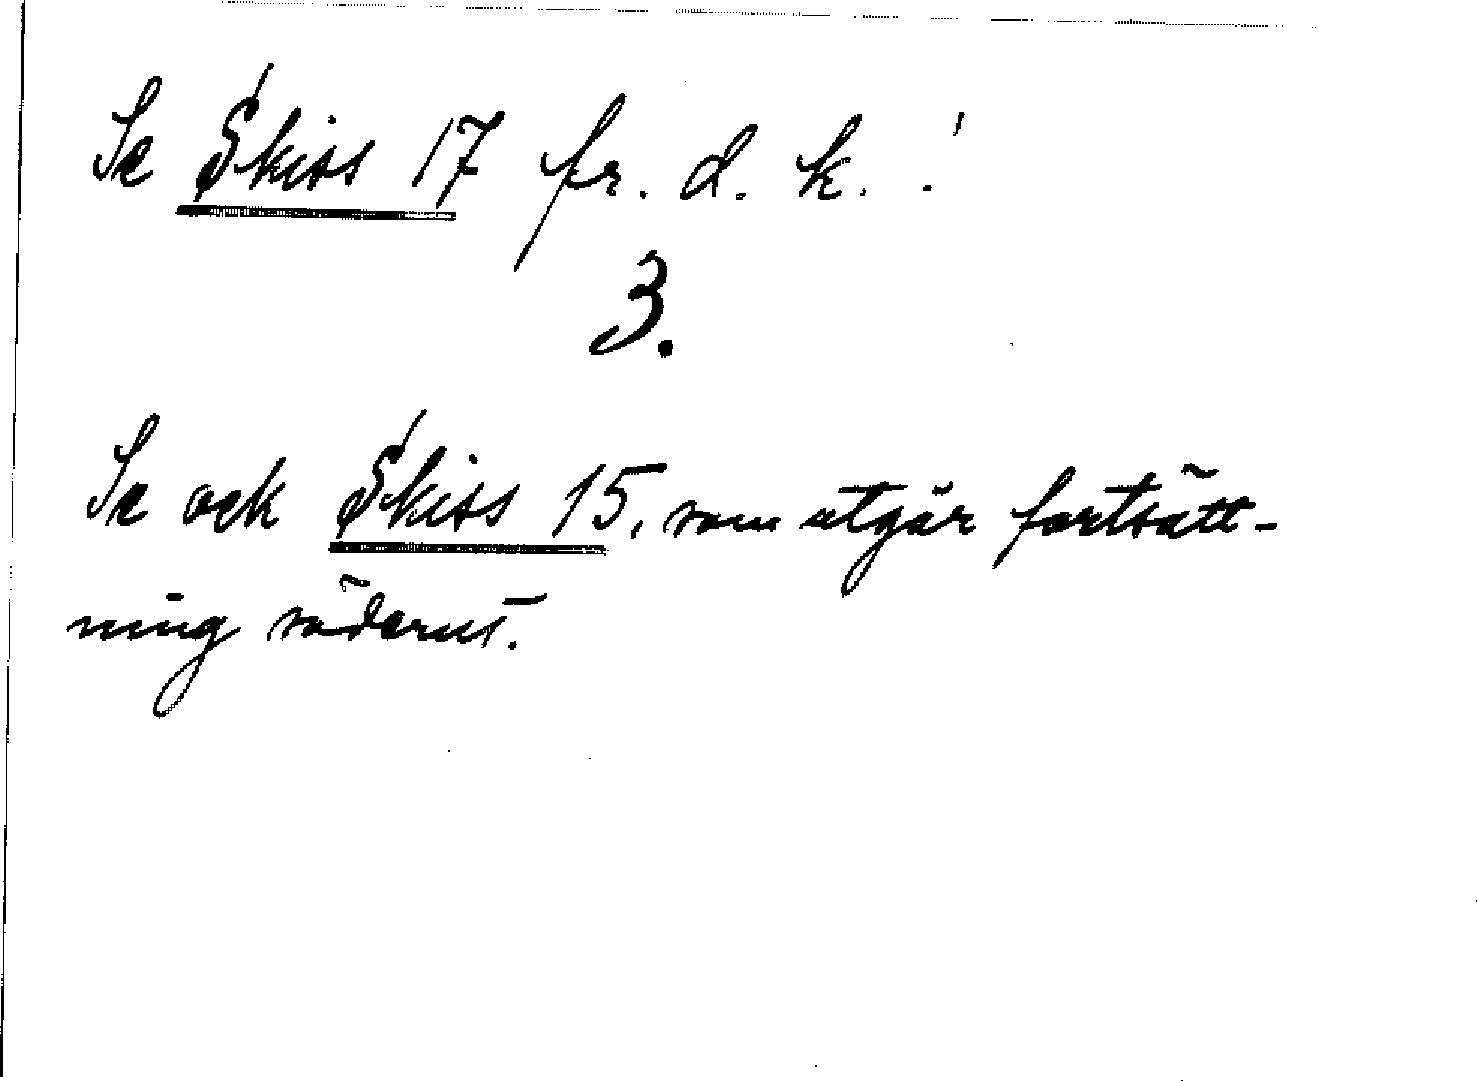 Se Skiss 17 fr. d. k.!
3.
Se ock Skiss 15, som utgår fortsätt-
ning söderut.